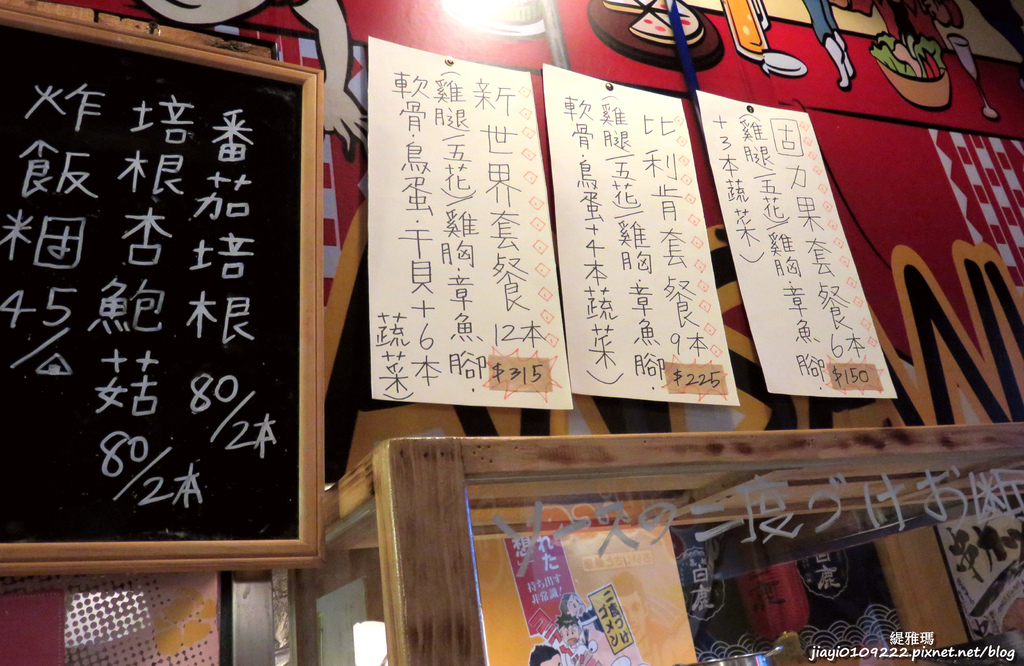 番茄培根 80/2本
培根杏鮑菇 80/2本
炸飯糰 45/
新世界套餐 12本
(雞腿/五花/雞胸·章魚腳·
軟骨·鳥蛋·干貝+6本
蔬菜)
$315
比利肯套餐 9本
(雞腿/五花/雞胸·章魚腳·
軟骨·鳥蛋+4本蔬菜)
$225
固力果套餐 6本
(雞腿/五花/雞胸·章魚腳
+3本蔬菜)
$150
ソースの二度づけお断
れた
想
持ち出す
非常識!
二度づけ
ゴメン
白鹿
白鹿
緹雅瑪
jiayi0109222.pixnet.net/blog